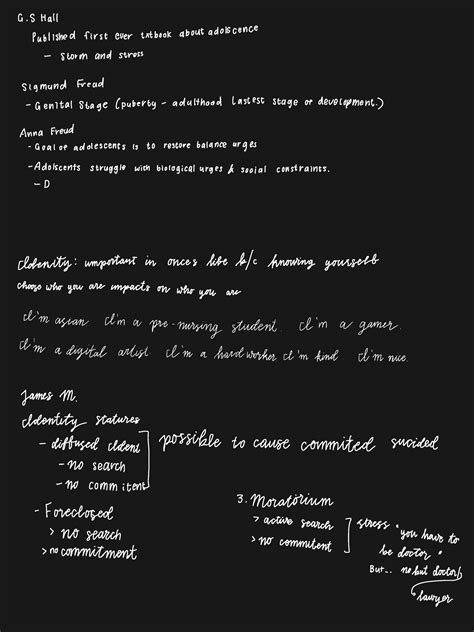 G.S Hall
Published first ever txtbook about adolscence
- Storm and stress
Sigmund Freud
- Genital Stage (puberty - adulthood lastest stage of development.)
Anna Freud
- Goal of adolescents is to restore balance urges
- Adolscents struggle with biological urges & social constraints.
- D
Idenity: umportant in onces life b/c knowing yourself
choose who you are impacts on who you are
I'm asian I'm a pre-nursing student. I'm a gamer.
I'm a digital artist. I'm a hard worker I'm kind I'm nice.
James M.
Identity statures
- diffused Ident
- no search
- no commitent
possible to cause commited sucided
- Foreclosed
> no search
> no commitment
3. Moratorium
> active search
> no commitent
stress "you have to
be doctor"
But... no but doctor
lawyer